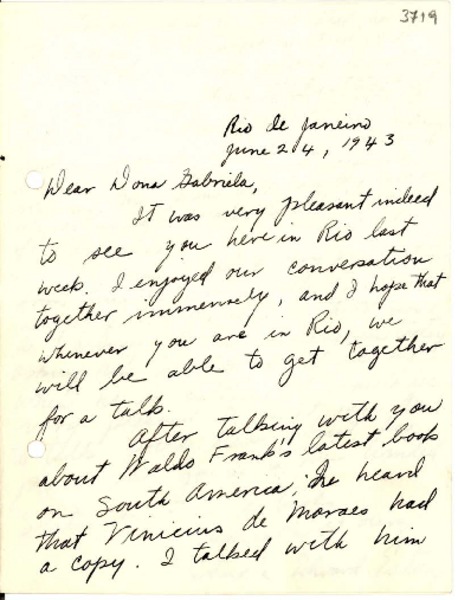 3719
Rio de Janeiro
June 24, 1943
Dear Dona Gabriela,
It was very pleasant indeed
to see you here in Rio last
week. I enjoyed our conversation
together immensely, and I hope that
whenever you are in Rio, we
will be able to get together
for a talk.
After talking with you
about Waldo Frank's latest book
on South America, I heard
that Vinicius de Moraes had
a copy. I talked with him